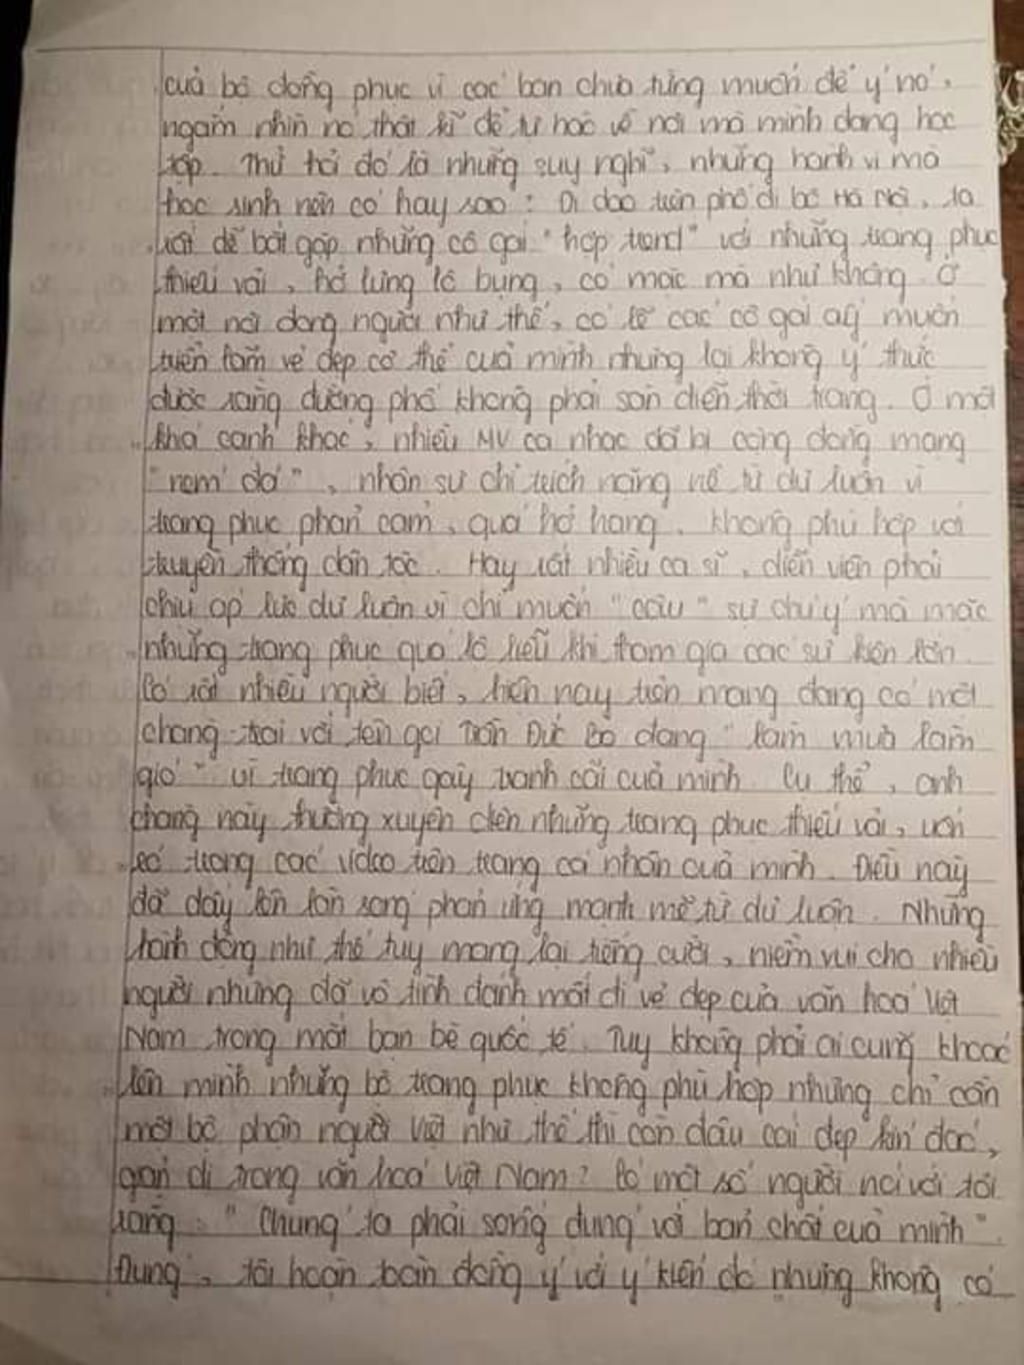 của bộ đồng phục vì các bạn chưa từng muốn để ý nó,
ngắm nhìn nó thật kĩ để tự hào về nơi mà mình đang học
tập. Thử hỏi đó là những suy nghĩ, những hành vi mà
học sinh nên có hay sao? Đi dạo trên phố đi bộ Hà Nội, ta
rất dễ bắt gặp những cô gái "hợp trend" với những trang phục
thiếu vải, hở lưng lộ bụng, có mặc mà như không. Ở
một nơi đông người như thế, có lẽ các cô gái ấy muốn
triển lãm vẻ đẹp cơ thể của mình nhưng lại không ý thức
được rằng đường phố không phải sàn diễn thời trang. Ở một
khía cạnh khác, nhiều MV ca nhạc đã bị cộng đồng mạng
"ném đá", nhận sự chỉ trích nặng nề từ dư luận vì
trang phục phản cảm, quá hở hang, không phù hợp với
truyền thống dân tộc. Hay rất nhiều ca sĩ, diễn viên phải
chịu áp lực dư luận vì chỉ muốn "câu" sự chú ý mà mặc
những trang phục quá lố liễu khi tham gia các sự kiện lớn.
Có rất nhiều người biết, hiện nay trên mạng đang có một
chàng trai với tên gọi Trần Đức Bo đang "làm mưa làm
gió" vì trang phục gây tranh cãi của mình. Cụ thể, anh
chàng này thường xuyên diện những trang phục thiếu vải, uốn
éo trong các video trên trang cá nhân của mình. Điều này
đã dấy lên làn sóng phản ứng mạnh mẽ từ dư luận. Những
hành động như thế tuy mang lại tiếng cười, niềm vui cho nhiều
người nhưng đã vô tình đánh mất đi vẻ đẹp của văn hoá Việt
Nam trong mắt bạn bè quốc tế. Tuy không phải ai cũng khoác
lên mình những bộ trang phục không phù hợp nhưng chỉ cần
một bộ phận người Việt như thế thì còn đâu cái đẹp kín đáo,
giản dị trong văn hoá Việt Nam? Có một số người nói với tôi
rằng: "Chúng ta phải sống đúng với bản chất của mình".
Đúng, tôi hoàn toàn đồng ý với ý kiến đó nhưng không có